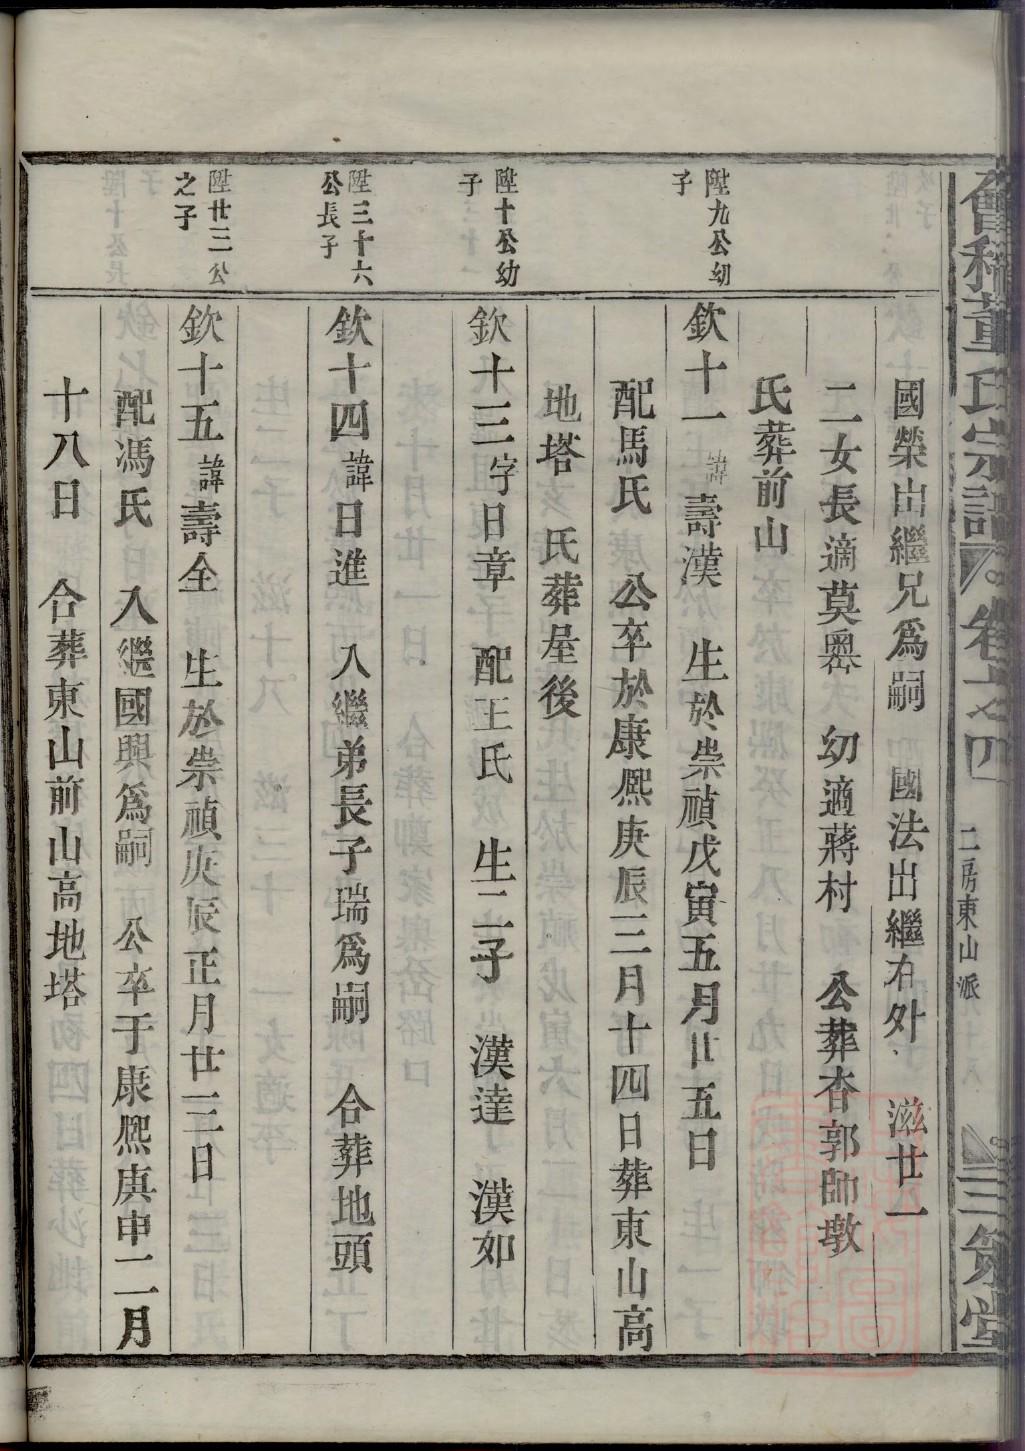 會稽董氏宗譜 卷六之四 二房東山派 三策堂
國榮出繼兄爲嗣 國法出繼右外 滋廿一
二女長適莫嶴 幼適蔣村 公葬杏郭師墩
氏葬前山
陞九公幼子
欽十一諱壽漢 生於崇禎戊寅五月廿五日
配馬氏 公卒於康熙庚辰三月十四日葬東山高
地塔 氏葬屋後
陞十公幼子
欽十三字日章 配王氏 生二子 漢達 漢如
陞三十六公長子
欽十四諱日進 入繼弟長子瑞爲嗣 合葬地頭
陞廿三公之子
欽十五諱壽全 生於崇禎庚辰正月廿三日
配馮氏 入繼國興爲嗣 公卒于康熙庚申二月
十八日 合葬東山前山高地塔